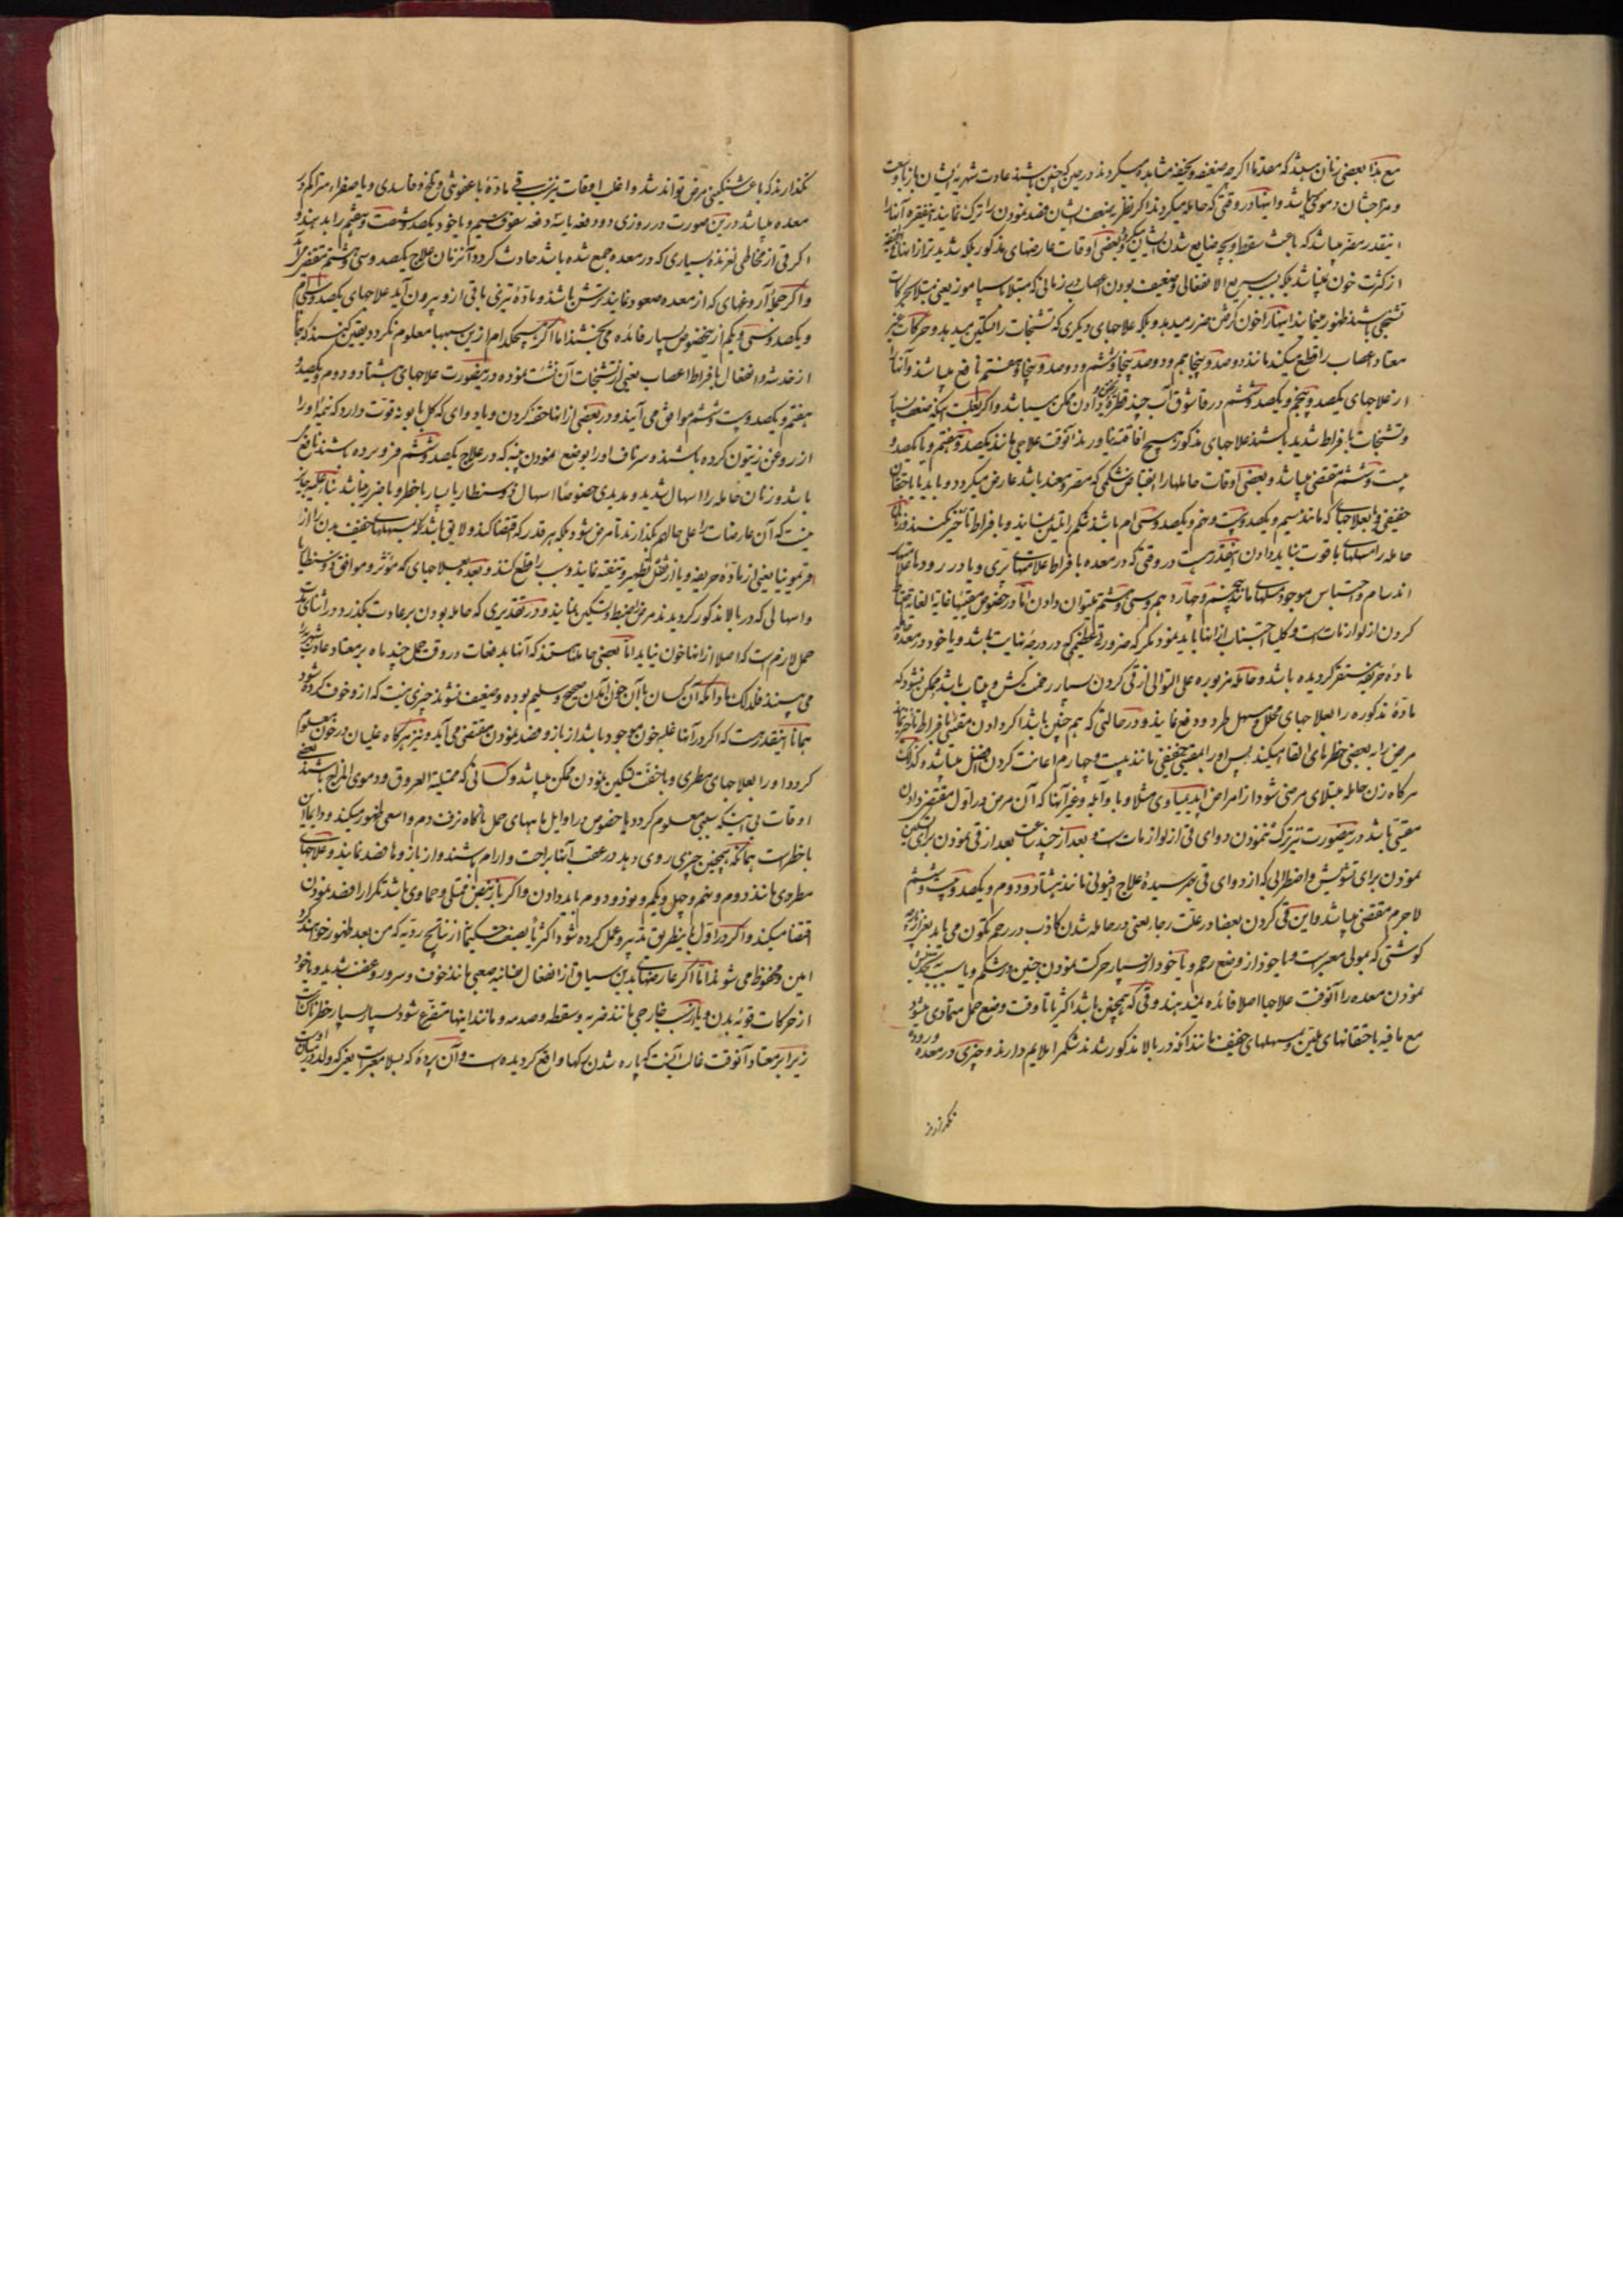 مع هذا بعضی زنان میباشند که معده‌ما اگر چه ضعیفه و نحیفه مشاهده میگردند در حین که چنین باشند عادت شهریه ایشان
و مزاجشان دموی میباشد و اینها در وقتی که حامله میگردند اگر نظر بضعف ایشان فصد نمودن را ترک نمایند این فقره آنها را
اینقدر مضر میباشد که باعث سقط و بچه ضایع شدن ایشان میگردد بعضی اوقات عارضهای مذکور بلکه شدیدتر از آنها
از کثرت خون نمیباشد بلکه بسبب سریع الانفعالی و ضعیف بودن اعصاب زمانی که مبتلا باسپاسموز یعنی مبتلا بحرکات
تشنجی باشند ظهور مینمایند اینها را خون گرفتن ضرر میدهد و بلکه علاجهای دیگری که تشنجات را تسکین میدهد و حرکات غیر
معتاد اعصاب را قطع میکند مانند دوصد و پنجاهم و دوصد و پنجاه و ششم و دوصد و پنجاه و هفتم نافع میباشد و آنها را
از علاجهای یکصد و پنجم و یکصد و ششم در قاشوق آب چند قطره دادن ممکن میباشد و اگر بعلت آنکه ضعف
و تشنجات بافراط شدید باشند علاجهای مذکور هیچ افاقه نیاورند آنوقت علاجی مانند یکصد و هفتم و یا یکصد و
بیست و ششم مقتضی میباشد و بعضی اوقات حاملها را انقباض شکمی که مضر و معند باشد عارض میگردد و باید یا باحتقان
خفیفی و یا بعلاجهای که مانند سیم و یکصد و بیست و پنجم و یکصد و سی ام باشد شکم را تلیین نمایند و بافراط تأخیر نکنند
حامله را مسهلهای باقوت نباید دادن حذر است در وقتی که در معده بافراط علامتهای تری و یا در روده
انسام و احتباس موجود مسهلها مانند پنجم و چهاردهم و سی و هشتم میتوان دادن اما در خصوص مقیئها غایة الغایه
کردن از لوازمات است و کلیاً اجتناب از آنها باید نمود مگر که ضرورتی عظیمی در درجه نهایت باشد و یا خود در معده
مادهٔ حریفه مستقر گردیده باشد و حامله مزبوره علی التوالی از قی کردن بسیار زحمت کش و بیتاب باشد ممکن نشود که
مادهٔ مذکوره را بعلاجهای محلل و مسهل طرد و دفع نماید و در حالتی که هم چنین باشد اگر دادن مقیئ بافراط تأخیر نماید
مریض را به بعضی خطرهای القا میکند پس او را بمقیئ خفیفی مانند بیست و چهارم اعانت کردن افضل میباشد و کذلک
هرگاه زن حامله مبتلای مرضی شود از امراض مثلا وبا و آبله و غیر آنها که آن مرض در اول مقتضی دادن
مقیئی باشد در اینصورت نیز ترک ننمودن دوای قی از لوازمات است و بعد از چند ساعت بعد از قی نمودن برای تسکین
نمودن برای تشویش و اضطرابی که از دوای قی بهم رسیده علاج افیونی مانند هشتاد و دوم و یکصد و بیست و ششم
لاجرم مقتضی میباشد و این قی کردن بعضا در علت رجا یعنی در حامله شدن کاذب در رحم تکون می یابد
گوشتی که بمولی معبر است و یا خود از وضع رحم و یا خود از بسیار حرکت نمودن جنین در شکم و یا بسبب
نمودن معده را آنوقت علاجها اصلا فائده نمیدهند وقتی که همچنین باشد اکثر یا تا وقت وضع حمل متمادی میشود
مع مافیه باحتقانهای ملین و مسهلهای خفیف مانند آنکه در بالا مذکور شدند شکم را ملایم دارند و چیزی در معده
نگذارند
نگذارند که باعث سنگینی مرض تواند شد و اغلب اوقات نیز سبب قی مادهٔ با عفونتی و تلخ و فاسدی و یا صفراء متراکم در
معده میباشد در این صورت در روزی دو دفعه یا سه دفعه سفوف سیم و یا خود یکصد و شصت و هفتم را بدهند و
اگر قی از مخاطی لغزندهٔ بسیاری که در معده جمع شده باشد حادث گردد آنزمان علاج یکصد و سی و هشتم مقتضی
و اگر جملهٔ آروغهای که از معده صعود نمایند ترش باشد و مادهٔ تیزی باقی از او بیرون آید علاجهای یکصد و سی ام
و یکصد و سی و یکم از بخصوص بسیار فائده می بخشند اما اگر هیچکدام از این سببها معلوم نگردد و یقین کنند که
از خدشه و انفعال بافراط اعصاب یعنی از تشنجات آن نشئت نموده در اینصورت علاجهای هشتاد و دوم و یکصد و
هفتم و یکصد و بیست و ششم موافق می آیند و در بعضی از اینها حقنه کردن و یا دوای که گل بابونه قوت دارد که نیمه او را
از روغن زیتون کرده باشند و سر ناف او را بوضع نمودن پنبه که در علاج یکصد و ششم فرو برده باشند نافع
باشد و زنان حامله را اسهال شدید و مدیدی خصوصا اسهال ذوسنطاریا بسیار باخطر و باضرر میباشد بناء علیه جایز
نیست که آن عارضات را علی حاله بگذارند تا مرض شود بلکه هر قدر که اقتضا کند و لایق باشد که بمسهلهای خفیف بدن را از
اقریمونیا یعنی از مادهٔ حریفه و یا از ثقل تطهیر و تنقیه نمایند و سبب را قطع کنند و بعده بعلاجهای که مؤثر و موافق ذوسنطاریا
و اسهالی که در بالا مذکور گردیدند مرض را ضبط و تسکین نمایند و در تقدیری که حامله بودن بر عادت بگذرد در اثنای
حمل لازم است که اصلا از آنها خون نیاید اما بعضی حاملها هستند که آنها بدفعات در وقت حمل چند ماه بر معتاد عادت
می بینند فلذلک مادامکه آن کسان با آن خون آمدن صحیح و سلیم بوده و ضعیف نشوند چیزی نیست که از او خوف کرده شود
همانا اینقدر هست که اگر در آنها غلبه خون موجود باشد از بازو فصد نمودن مقتضی می آید و نیز هرگاه غلیان در خون معلوم
گردد او را بعلاجهای مطری و با خفت تسکین نمودن ممکن میباشد و کسانی که ممتلیة العروق و دموی المزاج باشند بعضی
اوقات بی اینکه سببی معلوم گردد با خصوص در اوایل ماههای حمل ناگاه نزف دم واسعی ظهور میکند و دایما این
با خطر است همانکه همچنین چیزی روی دهد در عقب آنها براحت و آرام باشند و از بازو ها فصد نمایند و علاجهای
مطروی مانند دوم و پنجم و چهل و یکم و نود و دوم باید دادن و اگر باز نبض ممتلی و حماوی باشد تکرار فصد نمودن
اقتضا میکند و اگر در اول باینطریق تدبیر و عمل کرده شود اکثریا بصنف حکیما از نتایج ردیه که من بعد ظهور خواهند کرد
امین و محفوظ می شوند اما اگر عارضهای بدین سیاق از انفعال نفسانیه صعبی مانند خوف و سرور و غضب شدید و یا خود
از حرکات قویهٔ بدن و یا از سبب خارجی مانند ضربه و سقطه و صدمه و مانند اینها متفرع شود بسیار بسیار خطرناک است
زیرا بر معتاد آنوقت غالب آنست که پاره شدن سکها واقع گردیده است و آن پردهٔ که بسلا معبر است یعنی که ولد در میان